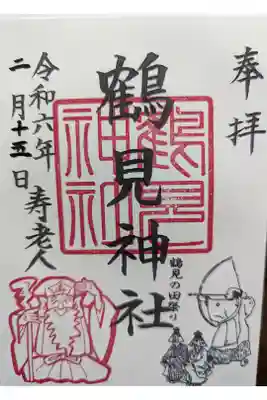 奉拝
鶴見神社
鶴見神社
鶴見の田祭り
令和六年
二月十五日
寿老人